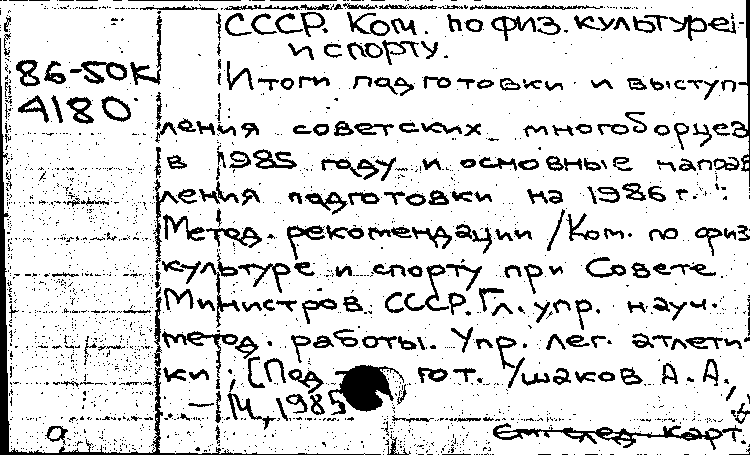 СССР. Ком. по физ. культуре
и спорту.
86-50К
4180
Итоги подготовки и выступ-
ления советских многоборцев
в 1985 году и основные направ
ления подготовки на 1986 г. :
Метод. рекомендации / Ком. по физ
культуре и спорту при Совете
Министров СССР. Гл. упр. науч.
метод. работы. Упр. лег. атлети-
ки ; [Под гот. Ушаков А. А.,
– М, 1985
а
См. след. карт.